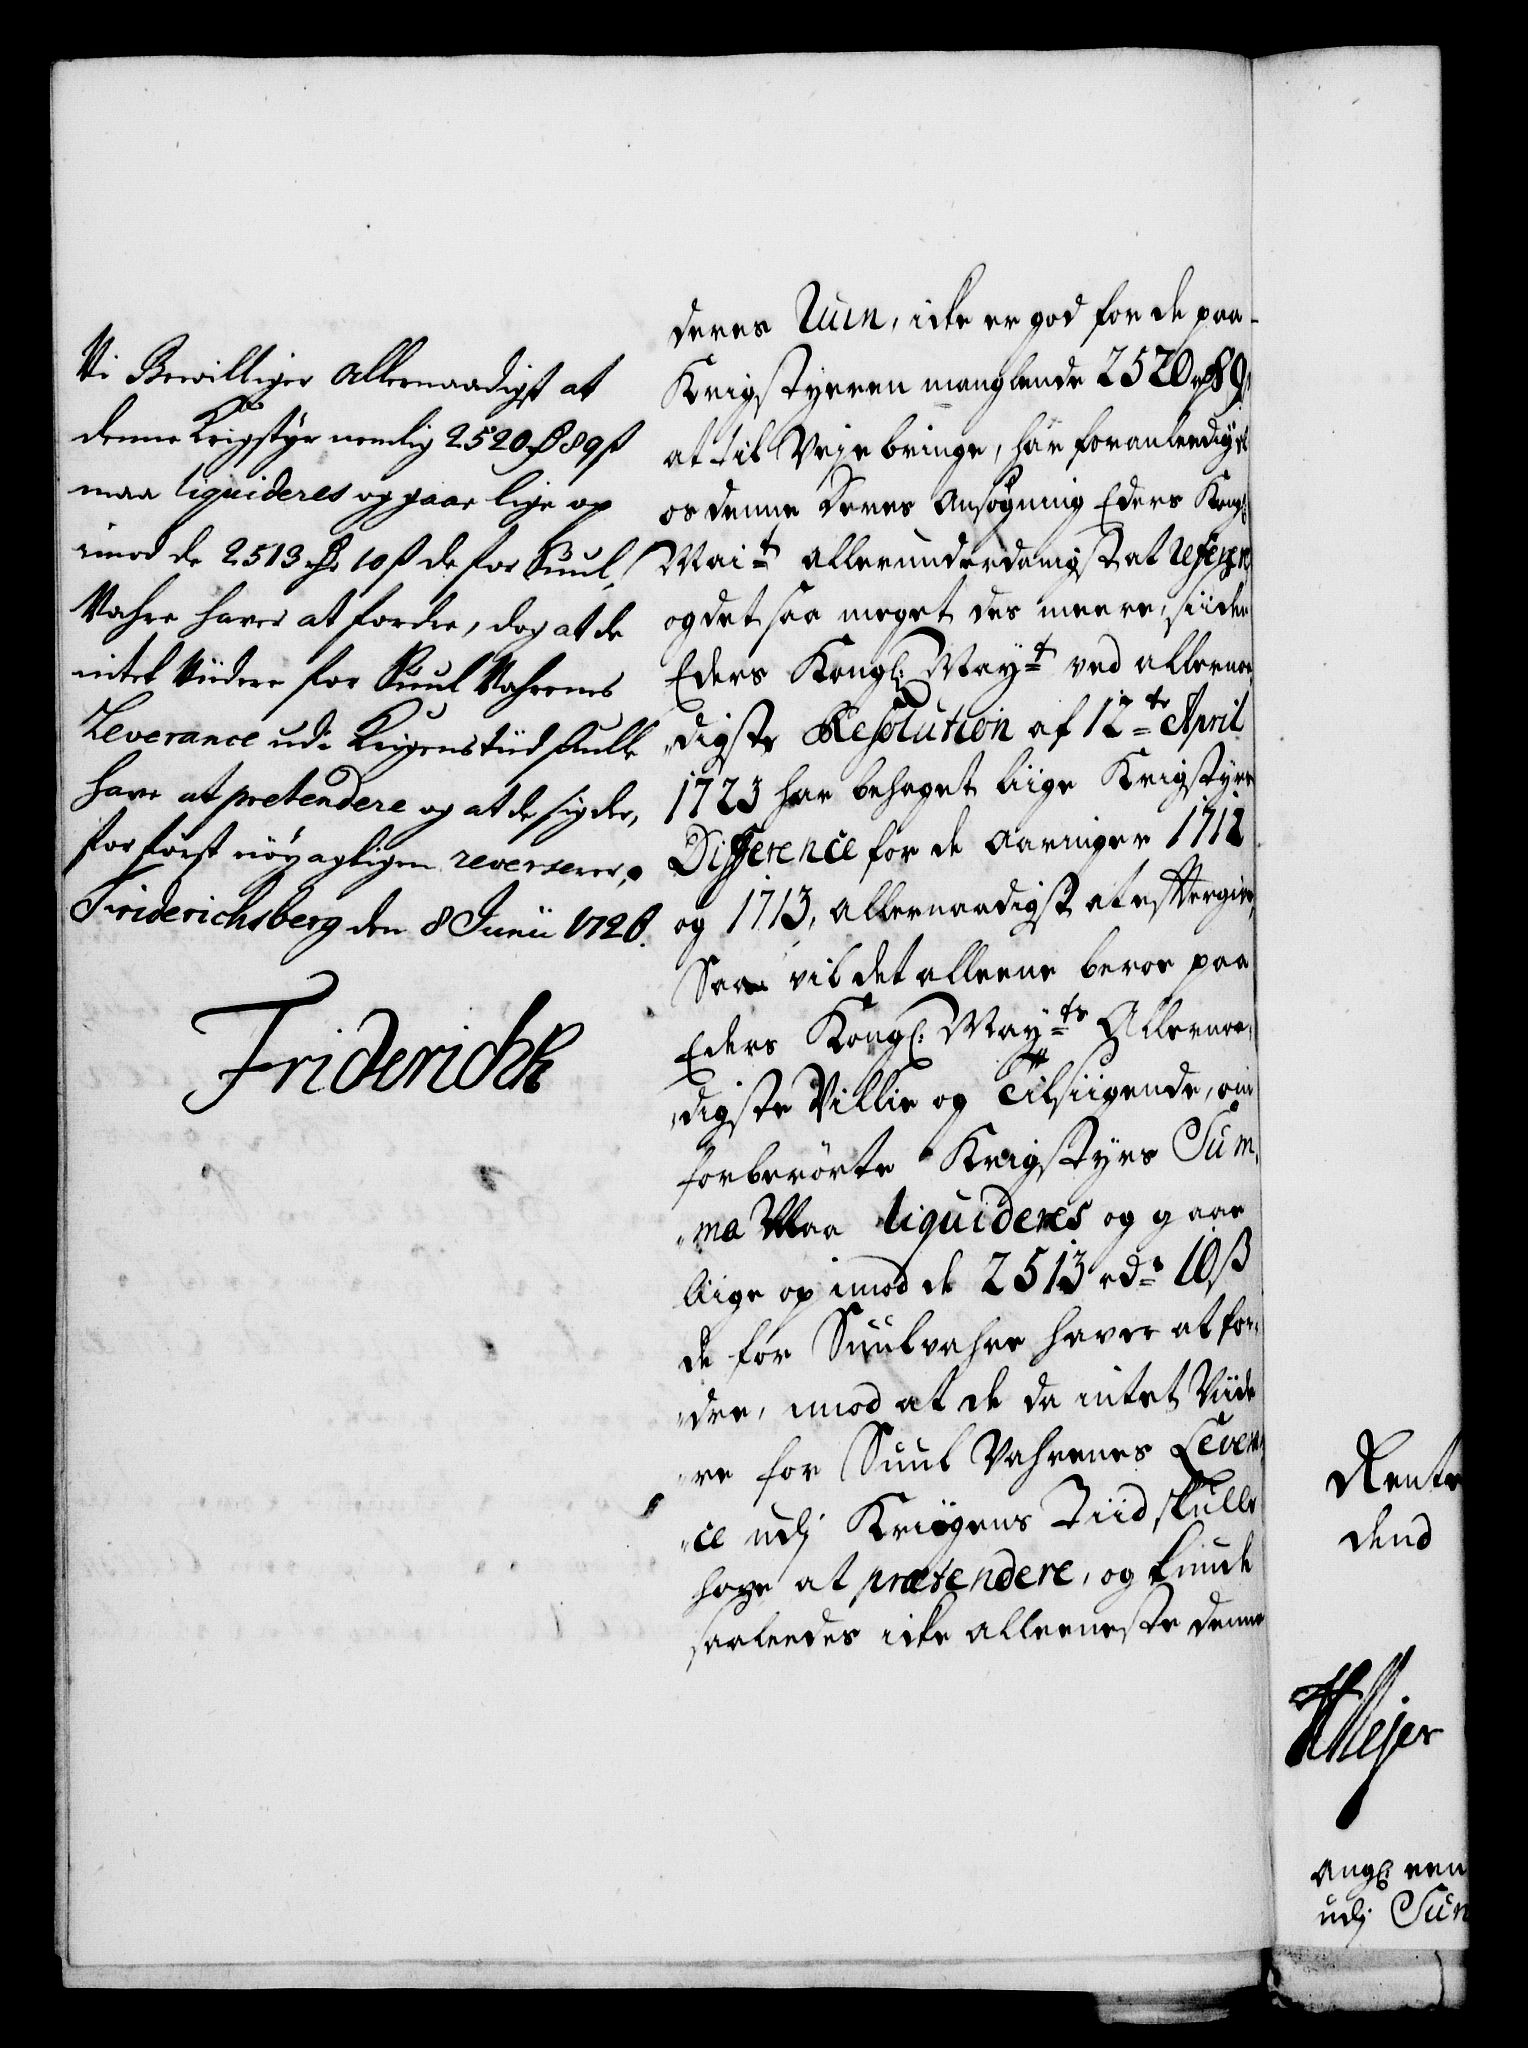 Vi Bevilliger Allernaadigst at
denne Krigstyr nemlig 2520 rdr 89 ß
maa liquideres og gaae lige op
imod de 2513 rdr 10 ß de for Suul-
Vahre haver at fordre, dog at de
intet Viidere for Suul Vahrernes
Leverance udi Krigens tiid skulle
have at pretendere og at de sig der-
for först nöyagtigen reverserer,
Friderichsberg den 8 Junii 1726.
Friderich R
deres Ruin, icke er god for de paa
Krigstyeren manglende 2520 rdr 89 ß
at til Veje bringe, har foranleediget
os denne deres Ansögning Eders Kongl:
Mait allerunderdanigst at referere
og det saa meget des meere, siiden
Eders Kongl: Mayt ved allernaa-
digste Resolution af 12te April
1723 har behaget liige Krigstyrs
Difference for de Aaringer 1712
og 1713, allernaadigst at eftergive,
Saa vil det alleene beroe paa
Eders Kongl: Mayts Allernaa-
digste Villie og Tilsiigende, om
forberörte Krigstyrs Sum-
ma Maa liquideres og gaae
liige op imod de 2513 rdr 10 ß
de for Suulvahre haver at for-
dre, imod at de da intet Viide
re for Suul Vahrenes Leveran-
ce udj Kriigens Tiid skulle
have at prætendere, og kunde
saaleedes icke alleeneste denne
Rente
dend
Meyer
ang: een
udj Sun